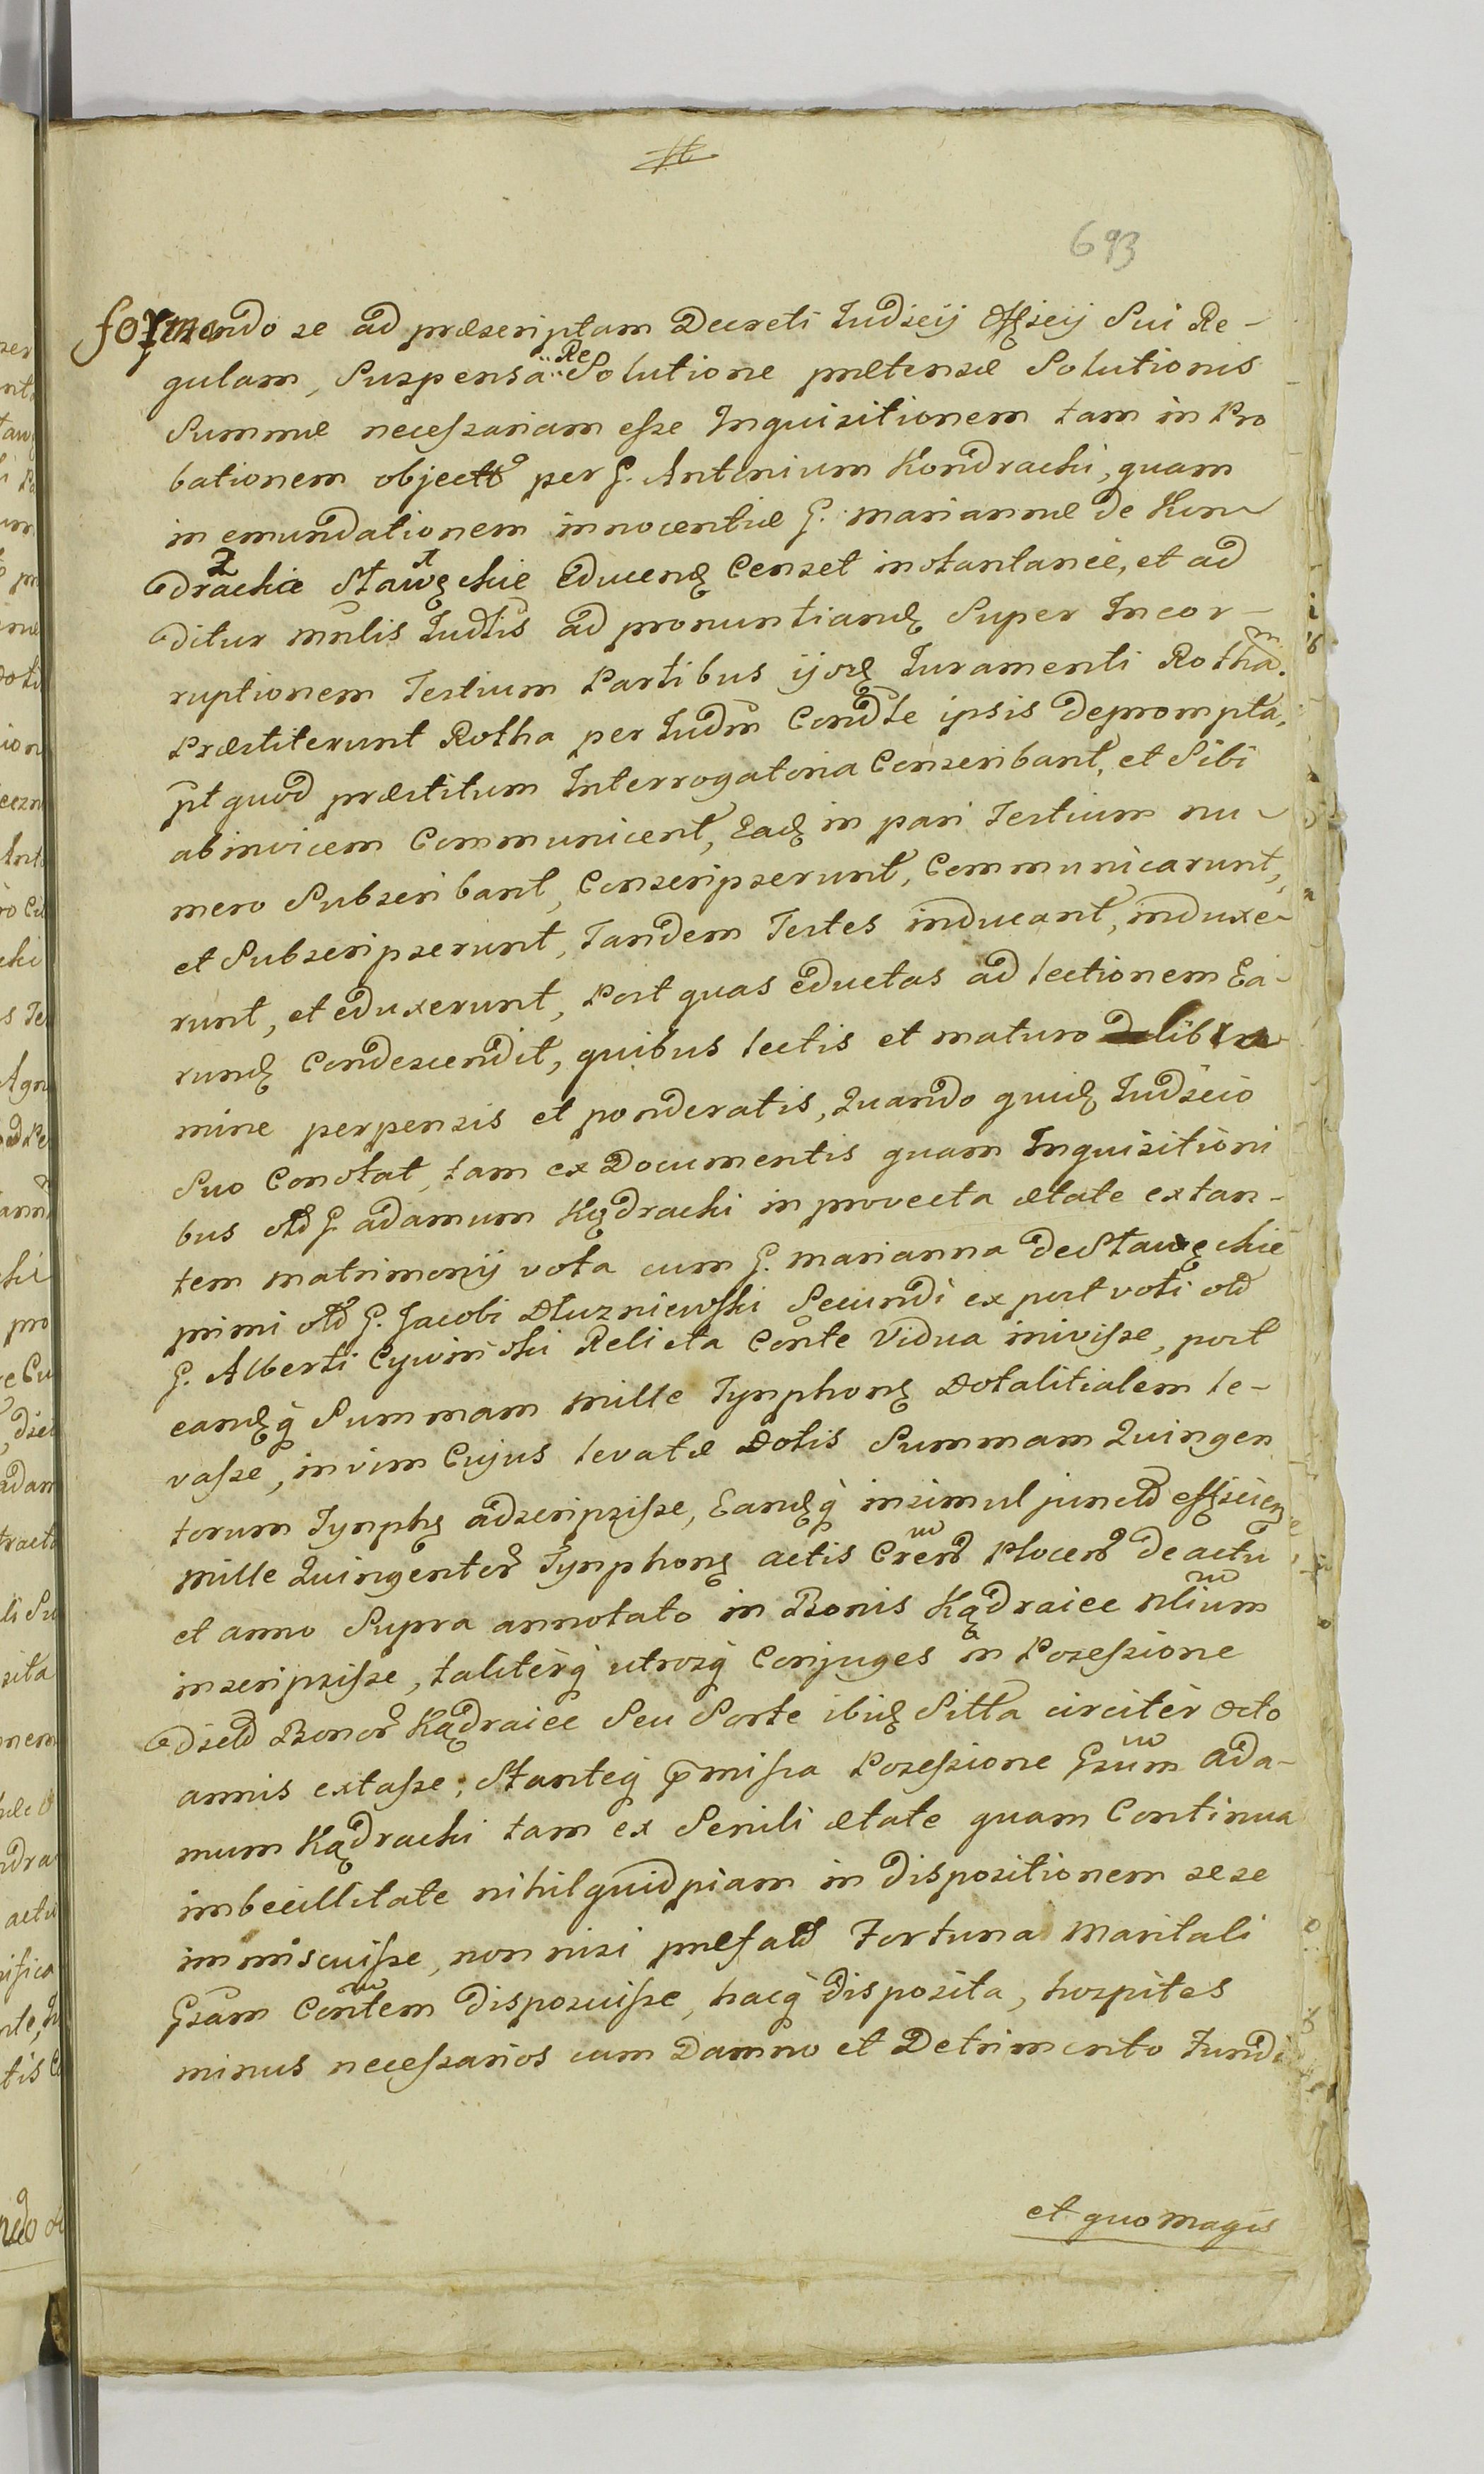 693
formando se ad præscriptam Decreti Judicij Officij Sui Re-
gulam, Suspensa Resolutione prætensæ Solutionis
Summæ necessariam esse Inquisitionem tam in Pro
bationem object per G. Antonium Kondracki, quam
in emundationem innocentiæ G. Mariannæ de Kon-
drackie Stawęckie Educend Censet instantanee, et ad
ditur mnlis Judtis ad pronuntiand Super Incor-
ruptionem Testium Partibus ijsd Juramenti Rotham.
Præstiterunt Rotha per Judm Condte ipsis deprompta,
pt quod præstitum Interrogatoria Conscribant, et Sibi
abinvicem Communicent, Ead in pari Testium nu-
mero Subscribant, Conscripserunt, Communicarunt,
et Subscripserunt, Tandem Testes inducant, induxe-
runt, et eduxerunt, Post quas eductas ad lectionem Ea-
rund Condescendit, quibus lectis et maturo libra
mine perpensis et ponderatis, Quando quid Judicio
Suo Constat, tam ex Documentis quam Inquisitioni
bus old G. Adamum Kądracki in provecta ætate extan-
tem matrimonij vota cum G. Marianna de Stawęckie
primi old G. Jacobi Dłuzniewski Secundi ex post voti old
G. Alberti Cywinski Relicta Conte Vidua inivisse, post
eandq Summam mille Tynphon Dotalitialem le-
vasse, in vim Cujus levatæ Dotis Summam Quingen
torum Tynph adscripsisse, Eandq insimul junctd efficien
mille Quingentor Tynphon actis Crend Plocen de actu
et anno Supra annotato in Bonis Kądraiec nlium
inscripsisse, taliterq utrosq Conjuges in Possessione
dictd Bonor Kądraiec Seu Sorte ibid Sitta circiter octo
annis extasse; Stanteq pmissa Possessione Gsum Ada-
mum Kądracki tam ex Senili ætate quam Continua
imbecillitate nihil quidpiam in dispositionem sese
immiscuisse, non nisi præfatd Fortuna Maritali
Gsam Contem disposuisse, hacq disposita, hospites
minus necessarios cum Damno et Detrimento Fundi
et quo magis